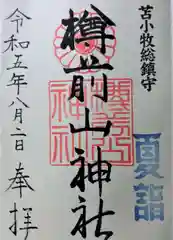 苫小牧総鎮守
夏詣
樽前山神社
奉拝
令和五年八月二日